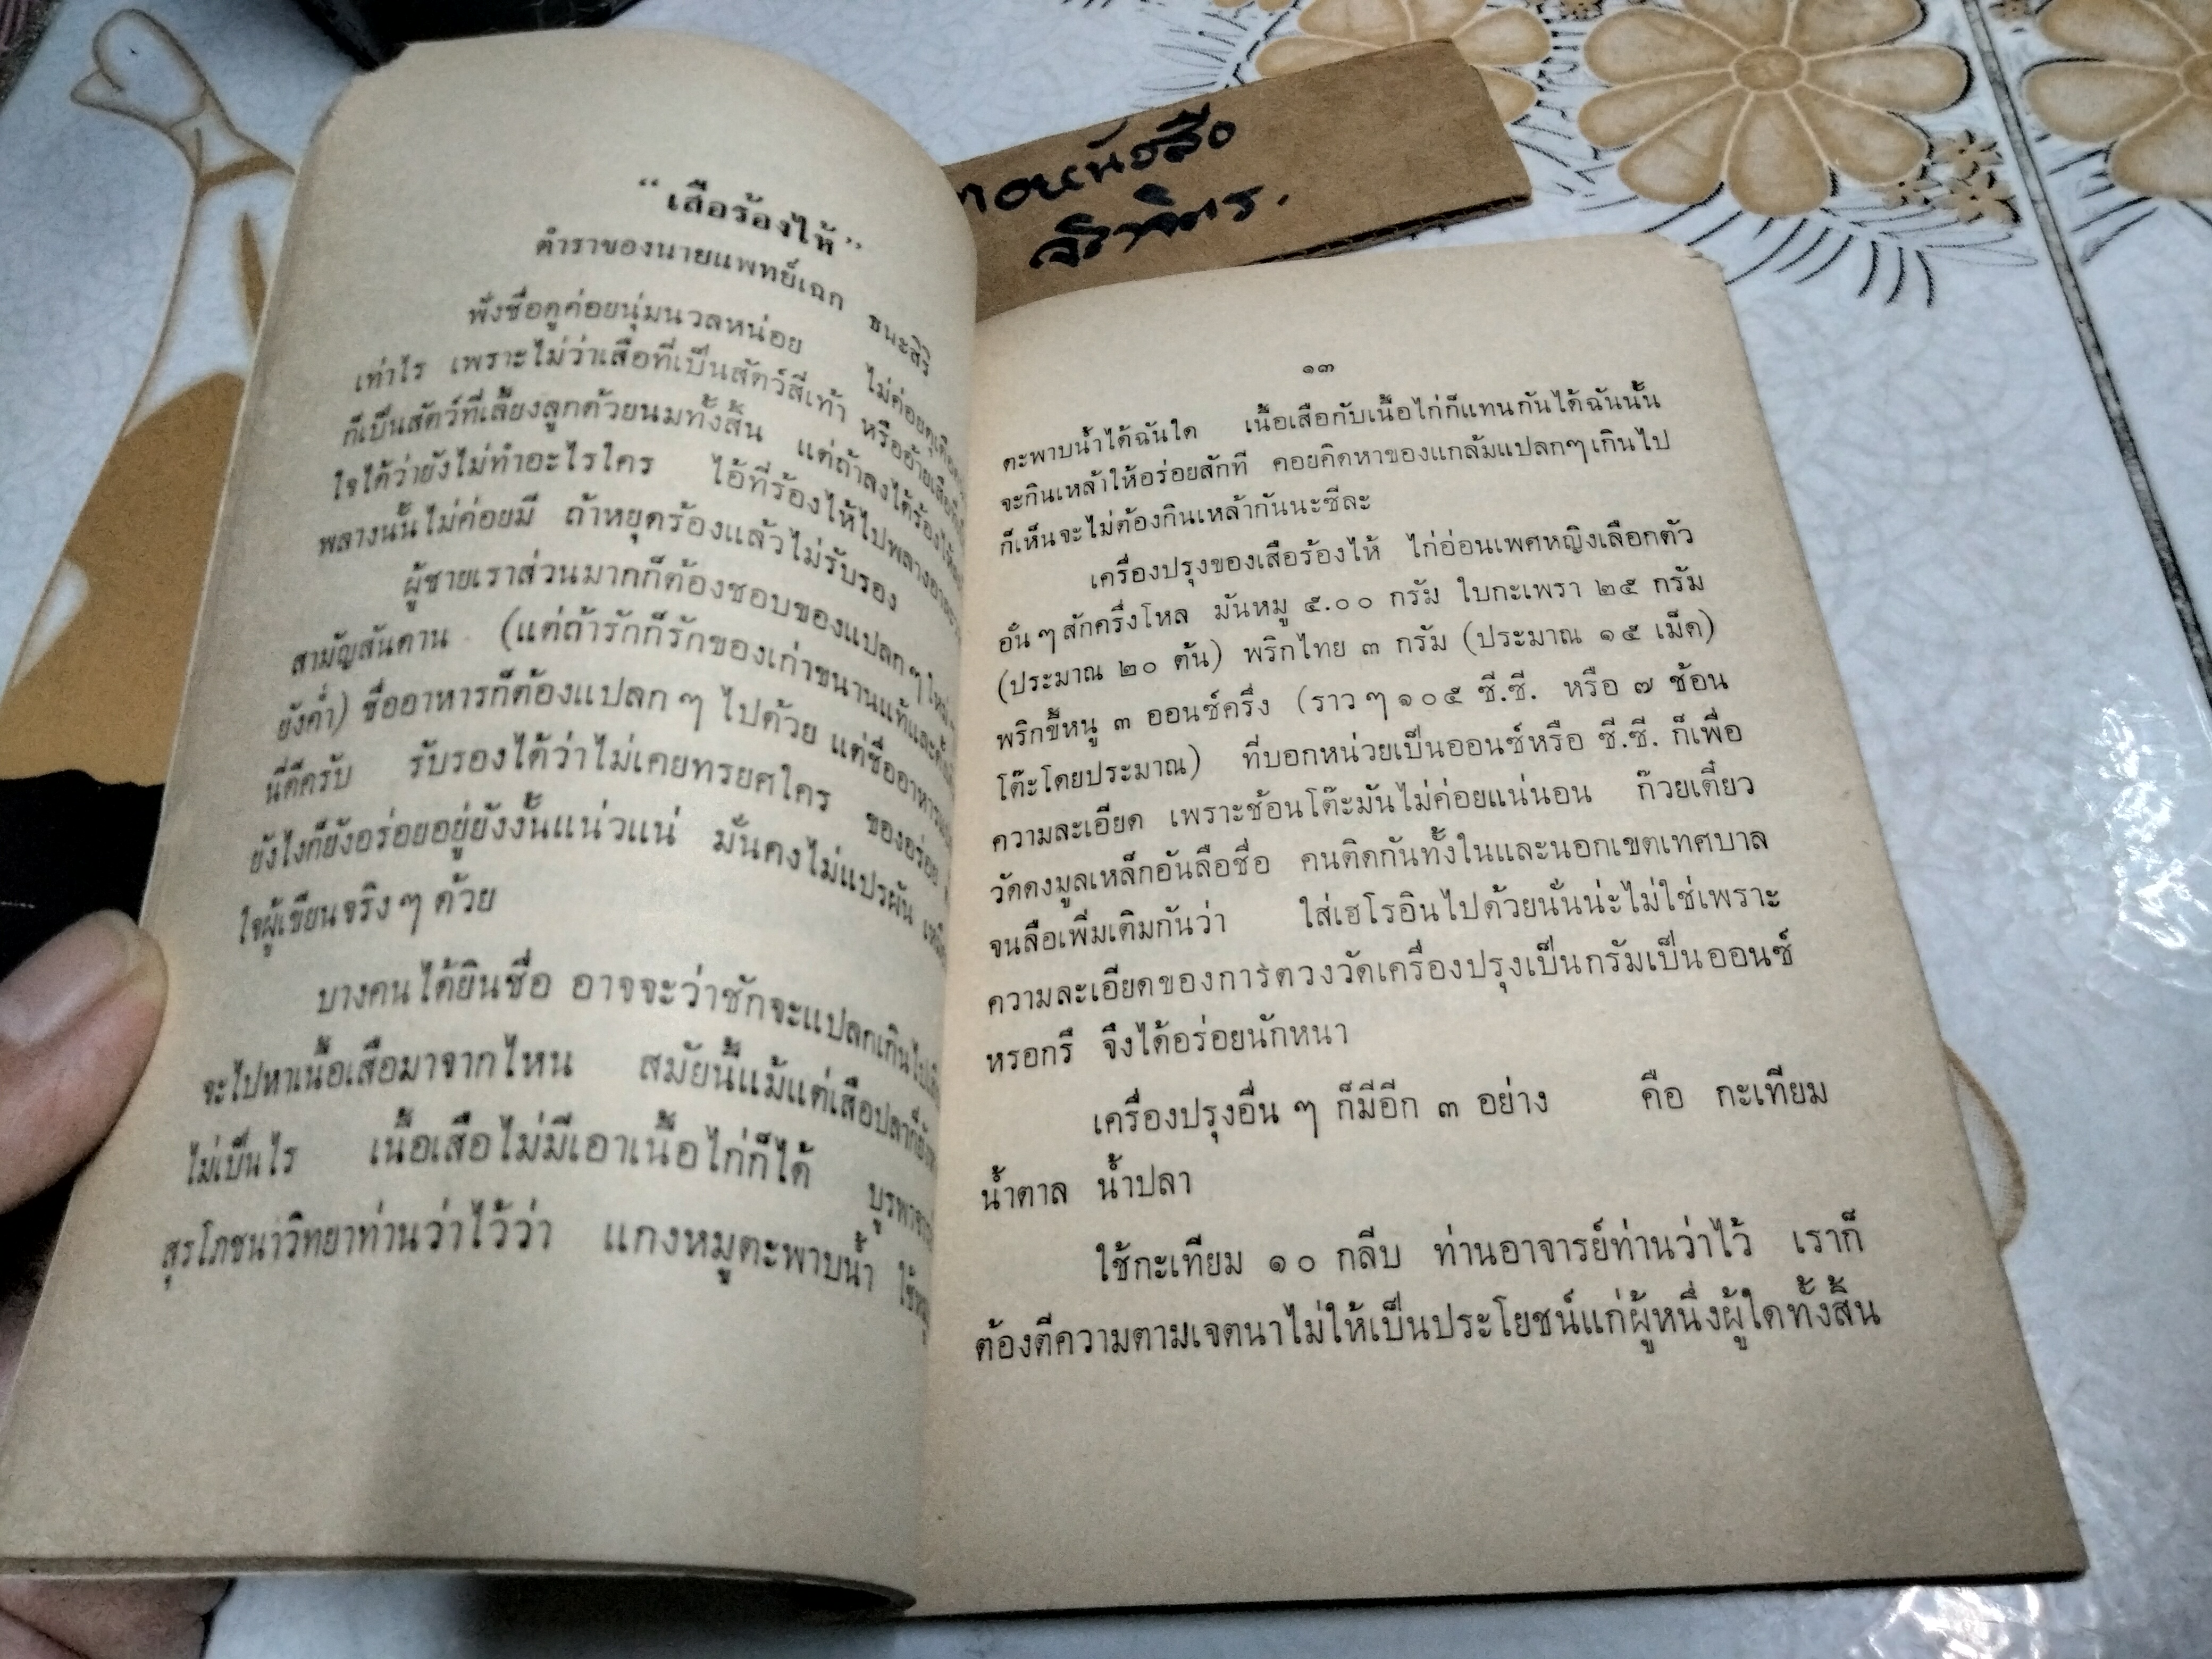 “เสือร้องไห้”
ตำราของนายแพทย์เฉก ธนะสิริ
ฟังชื่อดูค่อยนุ่มนวลหน่อย ไม่ค่อยดุเดือด
เท่าไร เพราะไม่ว่าเสือที่เป็นสัตว์สี่เท้า หรืออ้ายเสือ
ก็เป็นสัตว์ที่เลี้ยงลูกด้วยนมทั้งสิ้น แต่ถ้าลงได้ร้องไห้
ใจได้ว่ายังไม่ทำอะไรใคร ไอ้ที่ร้องไห้ไปพลาง
พลางนั้นไม่ค่อยมี ถ้าหยุดร้องแล้วไม่รับรอง
ผู้ชายเราส่วนมากก็ต้องชอบของแปลก ๆ ใหม่
สามัญสันดาน (แต่ถ้ารักก็รักของเก่าขนานแท้และดั้งเดิม
ยังค่ำ) ชื่ออาหารก็ต้องแปลก ๆ ไปด้วย แต่ชื่ออาหาร
นี่ดีครับ รับรองได้ว่าไม่เคยทรยศใคร ของอร่อย
ยังไงก็ยังอร่อยอยู่ยังงั้นแน่วแน่ มั่นคงไม่แปรผัน
ใจผู้เขียนจริง ๆ ด้วย
บางคนได้ยินชื่อ อาจจะว่าชักจะแปลกเกินไป
จะไปหาเนื้อเสือมาจากไหน สมัยนี้แม้แต่เสือปลาก็
ไม่เป็นไร เนื้อเสือไม่มีเอาเนื้อไก่ก็ได้
สุรโภชนาวิทยาท่านว่าไว้ว่า แกงหมูตะพาบน้ำ ใช้หมู
๑๓
ตะพาบน้ำได้ฉันใด เนื้อเสือกับเนื้อไก่ก็แทนกันได้ฉันนั้น
จะกินเหล้าให้อร่อยสักที คอยคิดหาของแกล้มแปลกๆ เกินไป
ก็เห็นจะไม่ต้องกินเหล้ากันนะซีละ
เครื่องปรุงของเสือร้องไห้ ไก่อ่อนเพศหญิงเลือกตัว
อั๋น ๆ สักครึ่งโหล มันหมู ๕.๐๐ กรัม ใบกะเพรา ๒๕ กรัม
(ประมาณ ๒๐ ต้น) พริกไทย ๓ กรัม (ประมาณ ๑๕ เม็ด)
พริกขี้หนู ๓ ออนซ์ครึ่ง (ราว ๆ ๑๐๕ ซี.ซี. หรือ ๗ ช้อน
โต๊ะโดยประมาณ) ที่บอกหน่วยเป็นออนซ์หรือ ซี.ซี. ก็เพื่อ
ความละเอียด เพราะช้อนโต๊ะมันไม่ค่อยแน่นอน ก๊วยเตี๋ยว
วัดดงมูลเหล็กอันลือชื่อ คนติดกันทั้งในและนอกเขตเทศบาล
จนลือเพิ่มเติมกันว่า ใส่เฮโรอินไปด้วยนั่นน่ะไม่ใช่เพราะ
ความละเอียดของการตวงวัดเครื่องปรุงเป็นกรัมเป็นออนซ์
หรอกรึ จึงได้อร่อยนักหนา
เครื่องปรุงอื่น ๆ ก็มีอีก ๓ อย่าง คือ กะเทียม
น้ำตาล น้ำปลา
ใช้กะเทียม ๑๐ กลีบ ท่านอาจารย์ท่านว่าไว้ เราก็
ต้องตีความตามเจตนาไม่ให้เป็นประโยชน์แก่ผู้หนึ่งผู้ใดทั้งสิ้น